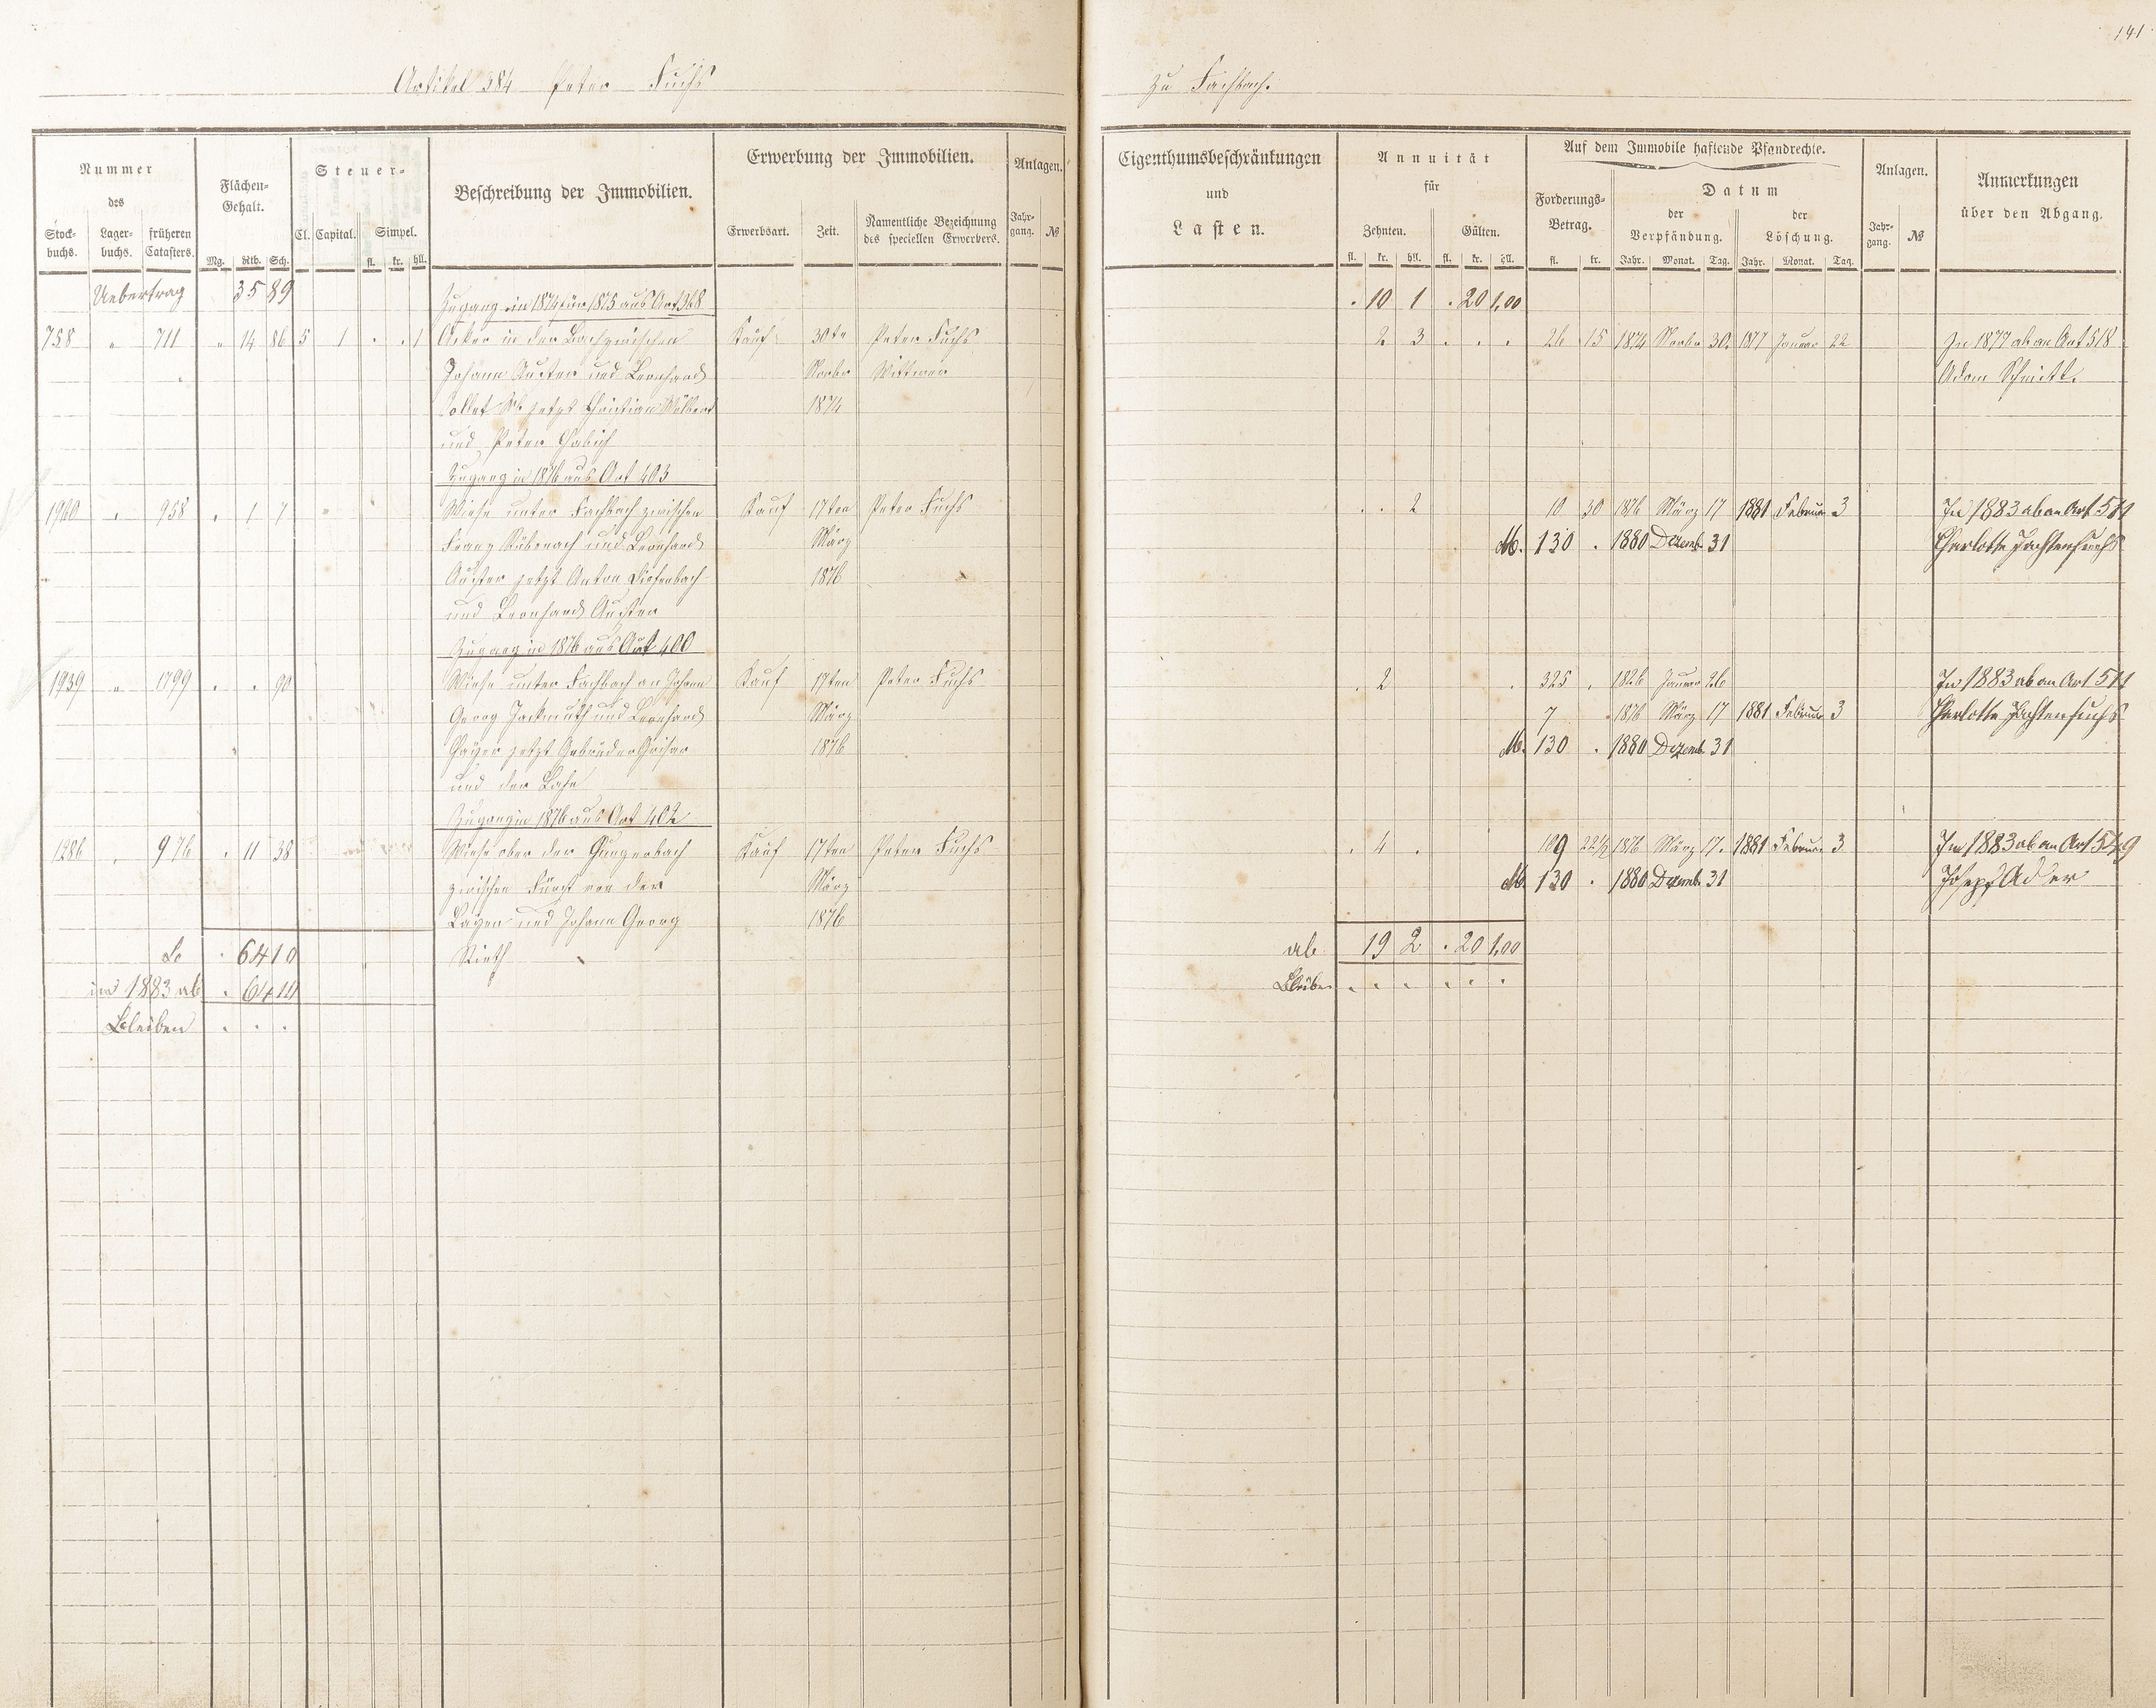 141
Artikel 384 Peter Fuchs zu Fachbach.
Nummer des
Stock-buchs. Lager-buchs. früheren Catasters.
Flächen-Gehalt.
Mg. Rth. Sch.
Steuer-
Cl. Capital. Simpel.
fl. kr. hll.
Beschreibung der Immobilien.
Erwerbung der Immobilien.
Erwerbsart. Zeit. Namentliche Bezeichnung des speciellen Erwerbers.
Anlagen.
Jahr-gang. №
Eigenthumsbeschränkungen
und
Lasten.
Annuität
für
Zehnten. Gülten.
fl. kr. hll. fl. kr. hll.
Auf dem Immobile haftende Pfandrechte.
Forderungs-Betrag.
fl. kr.
Datum
der Verpfändung. der Löschung.
Jahr. Monat. Tag. Jahr. Monat. Tag.
Anlagen.
Jahr-gang. №
Anmerkungen
über den Abgang.
Uebertrag 35 89 . 10 1 . 20 1,00
Zugang in 1874 für 1875 aus Art 368
758 " 711 " 14 86 5 1 . . 1 Acker in der Bach zwischen Kauf 30te Peter Fuchs 2 3 . . . 26 15 1874 Novbr 30. 1877 Januar 22 In 1877 ab an Art 518
Johann Auster und Leonhard Novbr Wittwer Adam Schmitt.
jetzt Christian 1874
und Peter
Zugang in 1876 aus Art 403
1960 " 958 . 1 7 Wiese unter Fachbach zwischen Kauf 17ten Peter Fuchs . . 2 10 30 1876 März 17 1881 Februar 3 In 1883 ab an Art 511
Franz und Leonhard März M. 130 . 1880 Dezemb. 31 Charlotte
Auster jetzt Anton Diefenbach 1876
und Leonhard Auster
Zugang in 1876 aus Art 400
1939 " 1799 . . 90 Wiese unter Fachbach an Johann Kauf 17ten Peter Fuchs . 2 . 325 . 1826 Januar 26 In 1883 ab an Art 511
Georg und Leonhard März 7 1876 März 17 1881 Februar 3 Charlotte
jetzt Gebrüder 1876 M. 130 . 1880 Dezemb 31
und der Lahn
Zugang in 1876 aus Art 402
1286 . 976 . 11 38 Wiese ober der Kauf 17ten Peter Fuchs . 4 . 109 22½ 1876 März 17. 1881 Februar 3 In 1883 ab an Art 549
zwischen Fürst von der März M. 130 . 1880 Dezemb. 31 Joseph Adler
Layen und Johann Georg 1876
. 64 10 ab 19 2 . 20 1,00
in 1883 ab . 64 10 Bleiben . . . . . .
Bleiben . . .